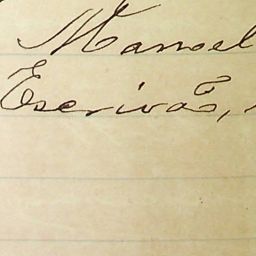 Manoel
Escrivão,